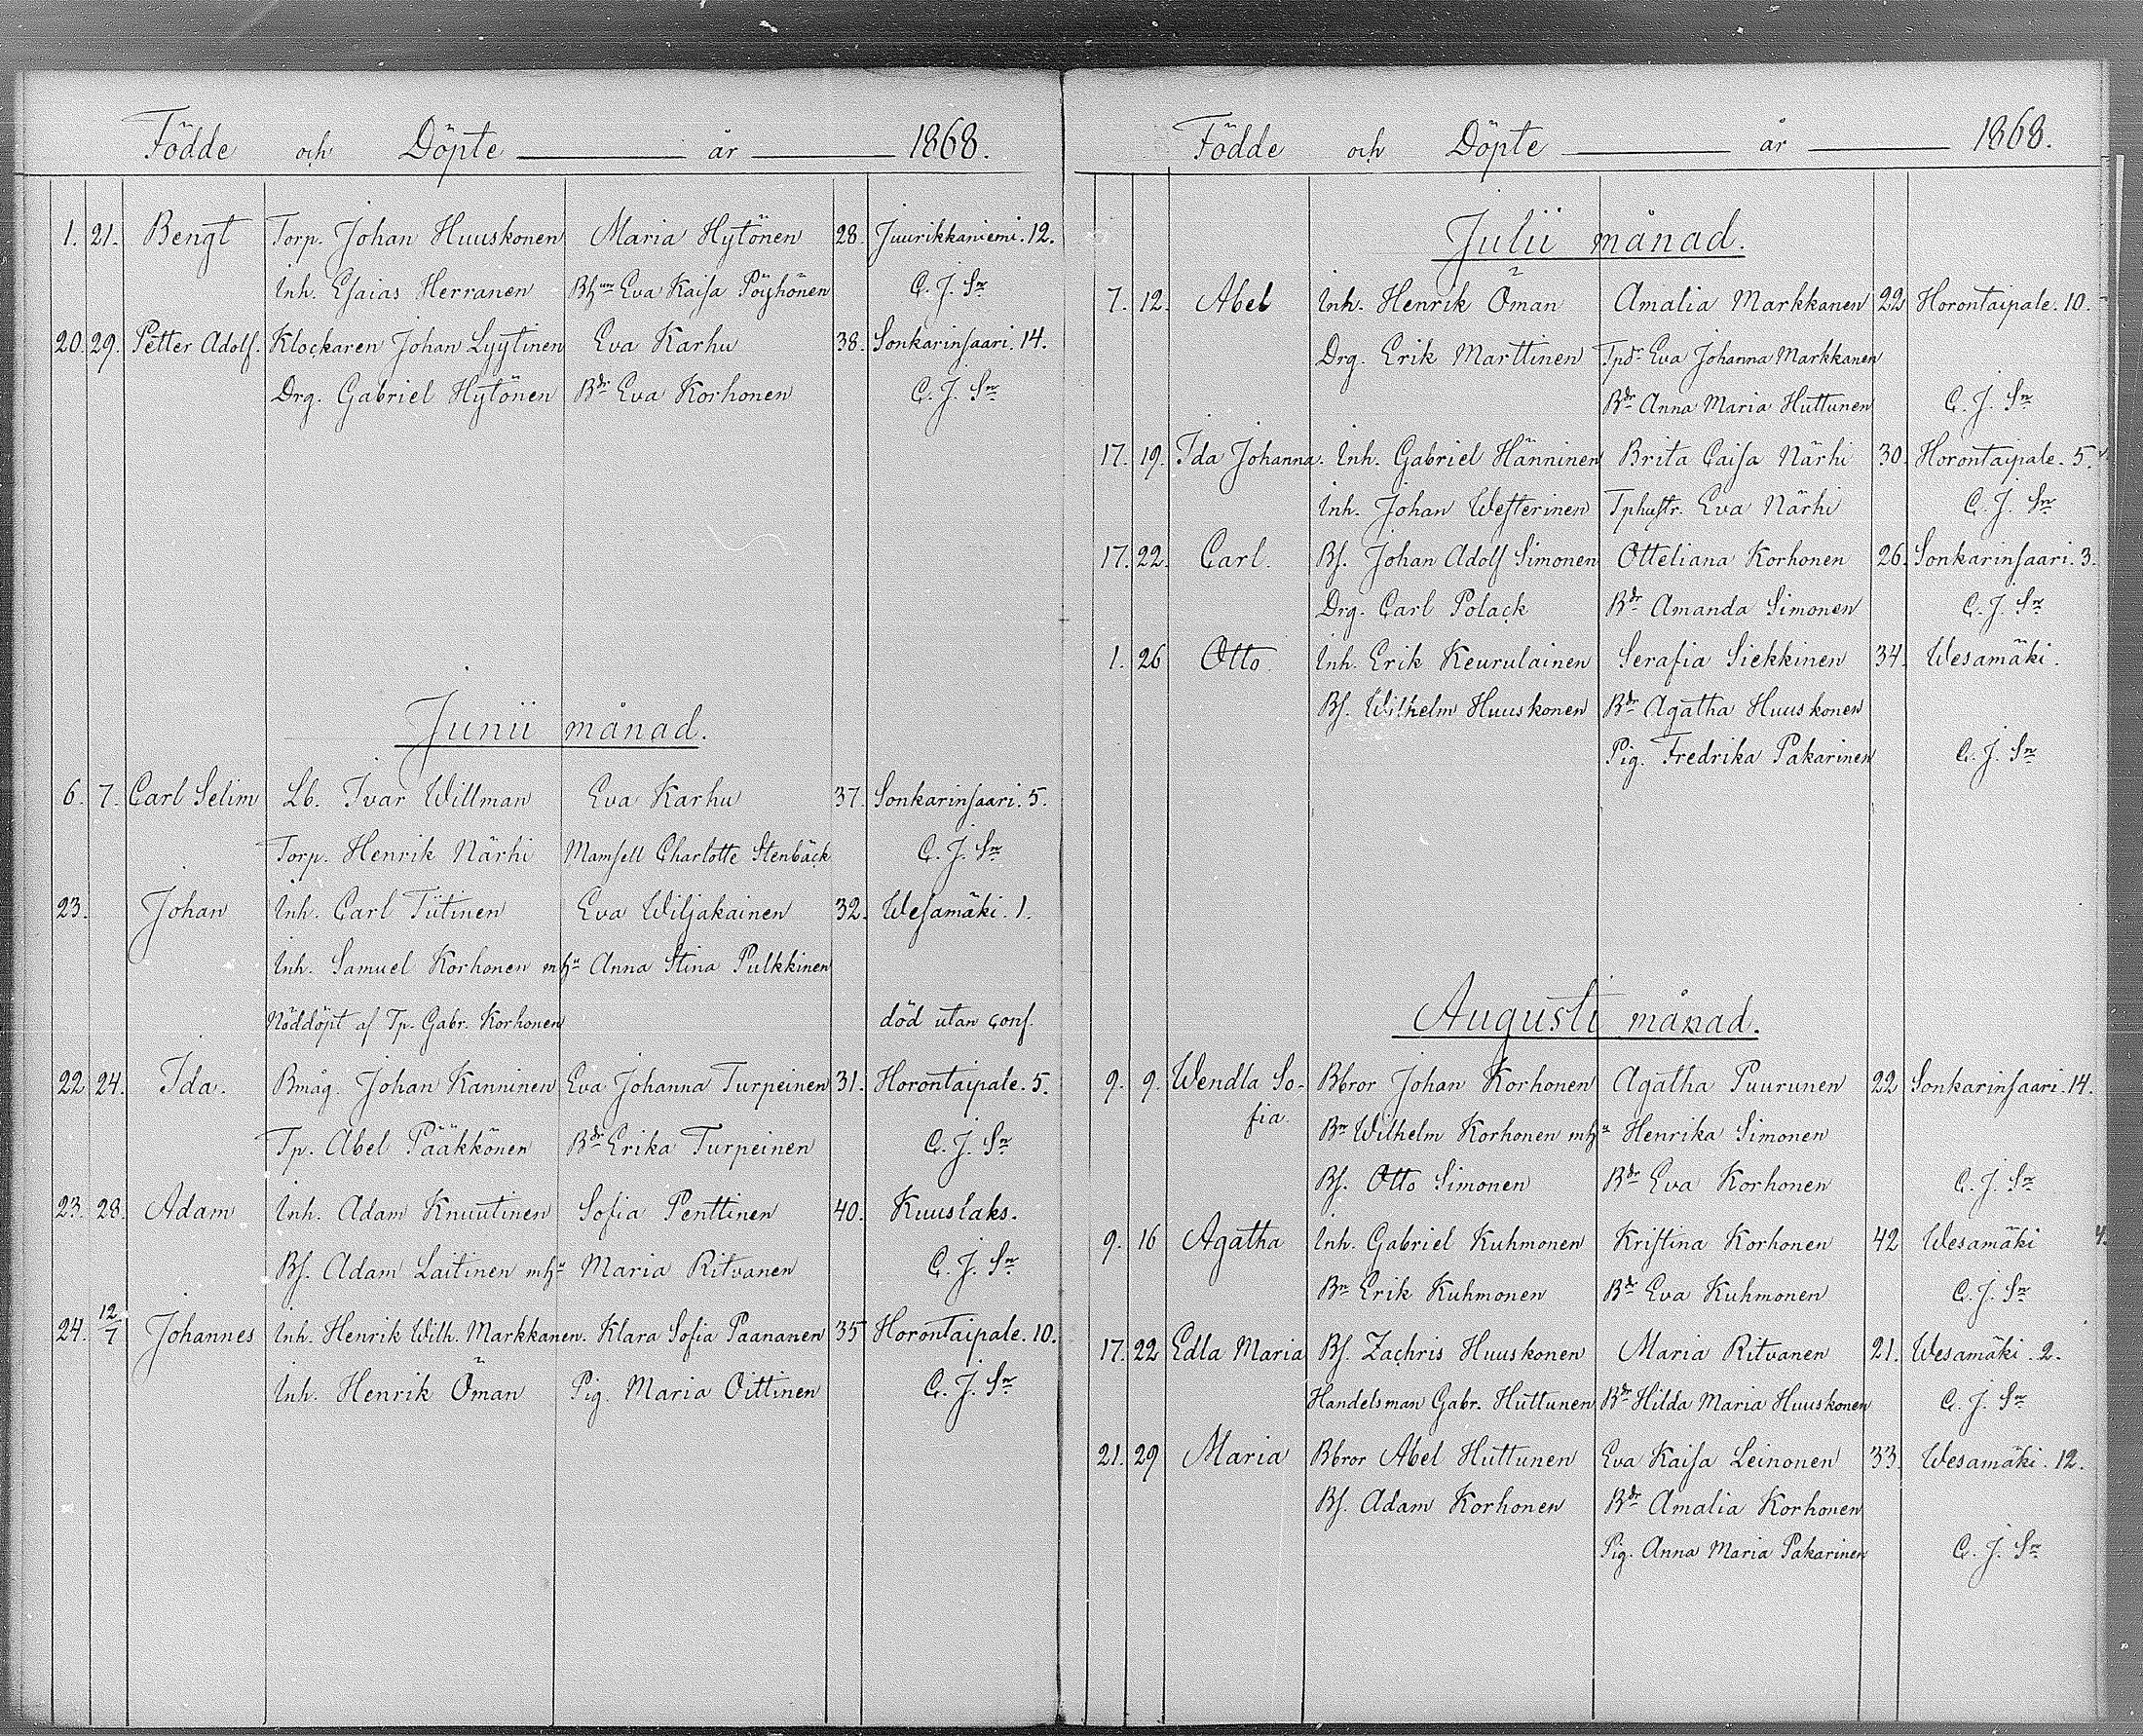 Födde och Döpte ——— år ——— 1868.
1. 21. Bengt Torp. Johan Huuskonen Maria Hytönen 28. Juurikkaniemi. 12.
Inh. Esaias Herranen Bhun Eva Kaisa Pöyhönen C. J. Sn
20. 29. Petter Adolf. Klockaren Johan Lyytinen Eva Karhu 38. Sonkarinsaari. 14.
Drg. Gabriel Hytönen Bdr Eva Korhonen C. J. Sn
Junii månad.
6. 7. Carl Selim Lb. Ivar Willman Eva Karhu 37. Sonkarinsaari. 5.
Torp. Henrik Närhi Mamsell Charlotte Stenbäck C. J. Sn
23. Johan Inh. Carl Tiitinen Eva Wiljakainen 32. Wesamäki. 1.
Inh. Samuel Korhonen mhu Anna Stina Pulkkinen
Nöddöpt af Tp. Gabr. Korhonen död utan conf.
22 24. Ida. Bmåg. Johan Kanninen Eva Johanna Turpeinen 31. Horontaipale. 5.
Tp. Abel Pääkkönen Bdr Erika Turpeinen C. J. Sn
23. 28. Adam Inh. Adam Knuutinen Sofia Penttinen 40. Kuuslaks.
Bs. Adam Laitinen mhu Maria Ritvanen C. J. Sn
24. 12/7 Johannes Inh. Henrik Wilh. Markkanen. Klara Sofia Paananen 35 Horontaipale. 10.
Inh. Henrik Öman Pig. Maria Oittinen C. J. Sn
Födde och Döpte ——— år ——— 1868.
Julii månad.
7. 12. Abel Inh. Henrik Öman Amalia Markkanen 22 Horontaipale. 10.
Drg. Erik Marttinen Tpdr Eva Johanna Markkanen
Bdr Anna Maria Huttunen C. J. Sn
17. 19. Ida Johanna. Inh. Gabriel Hänninen Brita Caisa Närhi 30. Horontaipale. 5.
Inh. Johan Westerinen Tphustr. Eva Närhi C. J. Sn
17. 22. Carl. Bs. Johan Adolf Simonen Otteliana Korhonen 26. Sonkarinsaari. 3.
Drg. Carl Polack Bdr Amanda Simonen C. J. Sn
1. 26 Otto. Inh. Erik Keurulainen Serafia Siekkinen 34. Wesamäki.
Bs. Wilhelm Huuskonen Bdr Agatha Huuskonen
Pig. Fredrika Pakarinen C. J. Sn
Augusti månad.
9. 9. Wendla So- Bbror Johan Korhonen Agatha Puurunen 22 Sonkarinsaari. 14.
fia. Bn Wilhelm Korhonen mhu Henrika Simonen
Bs. Otto Simonen Bdr Eva Korhonen C. J. Sn
9. 16 Agatha Inh. Gabriel Kuhmonen Kristina Korhonen 42 Wesamäki 4.
Bn Erik Kuhmonen Bdr Eva Kuhmonen C. J. Sn
17. 22 Edla Maria Bs. Zachris Huuskonen Maria Ritvanen 21. Wesamäki. 2.
Handelsman Gabr. Huttunen Bdr Hilda Maria Huuskonen C. J. Sn
21. 29 Maria Bbror Abel Huttunen Eva Kaisa Leinonen 33. Wesamäki. 12.
Bs. Adam Korhonen Bdr Amalia Korhonen
Pig. Anna Maria Pakarinen C. J. Sn